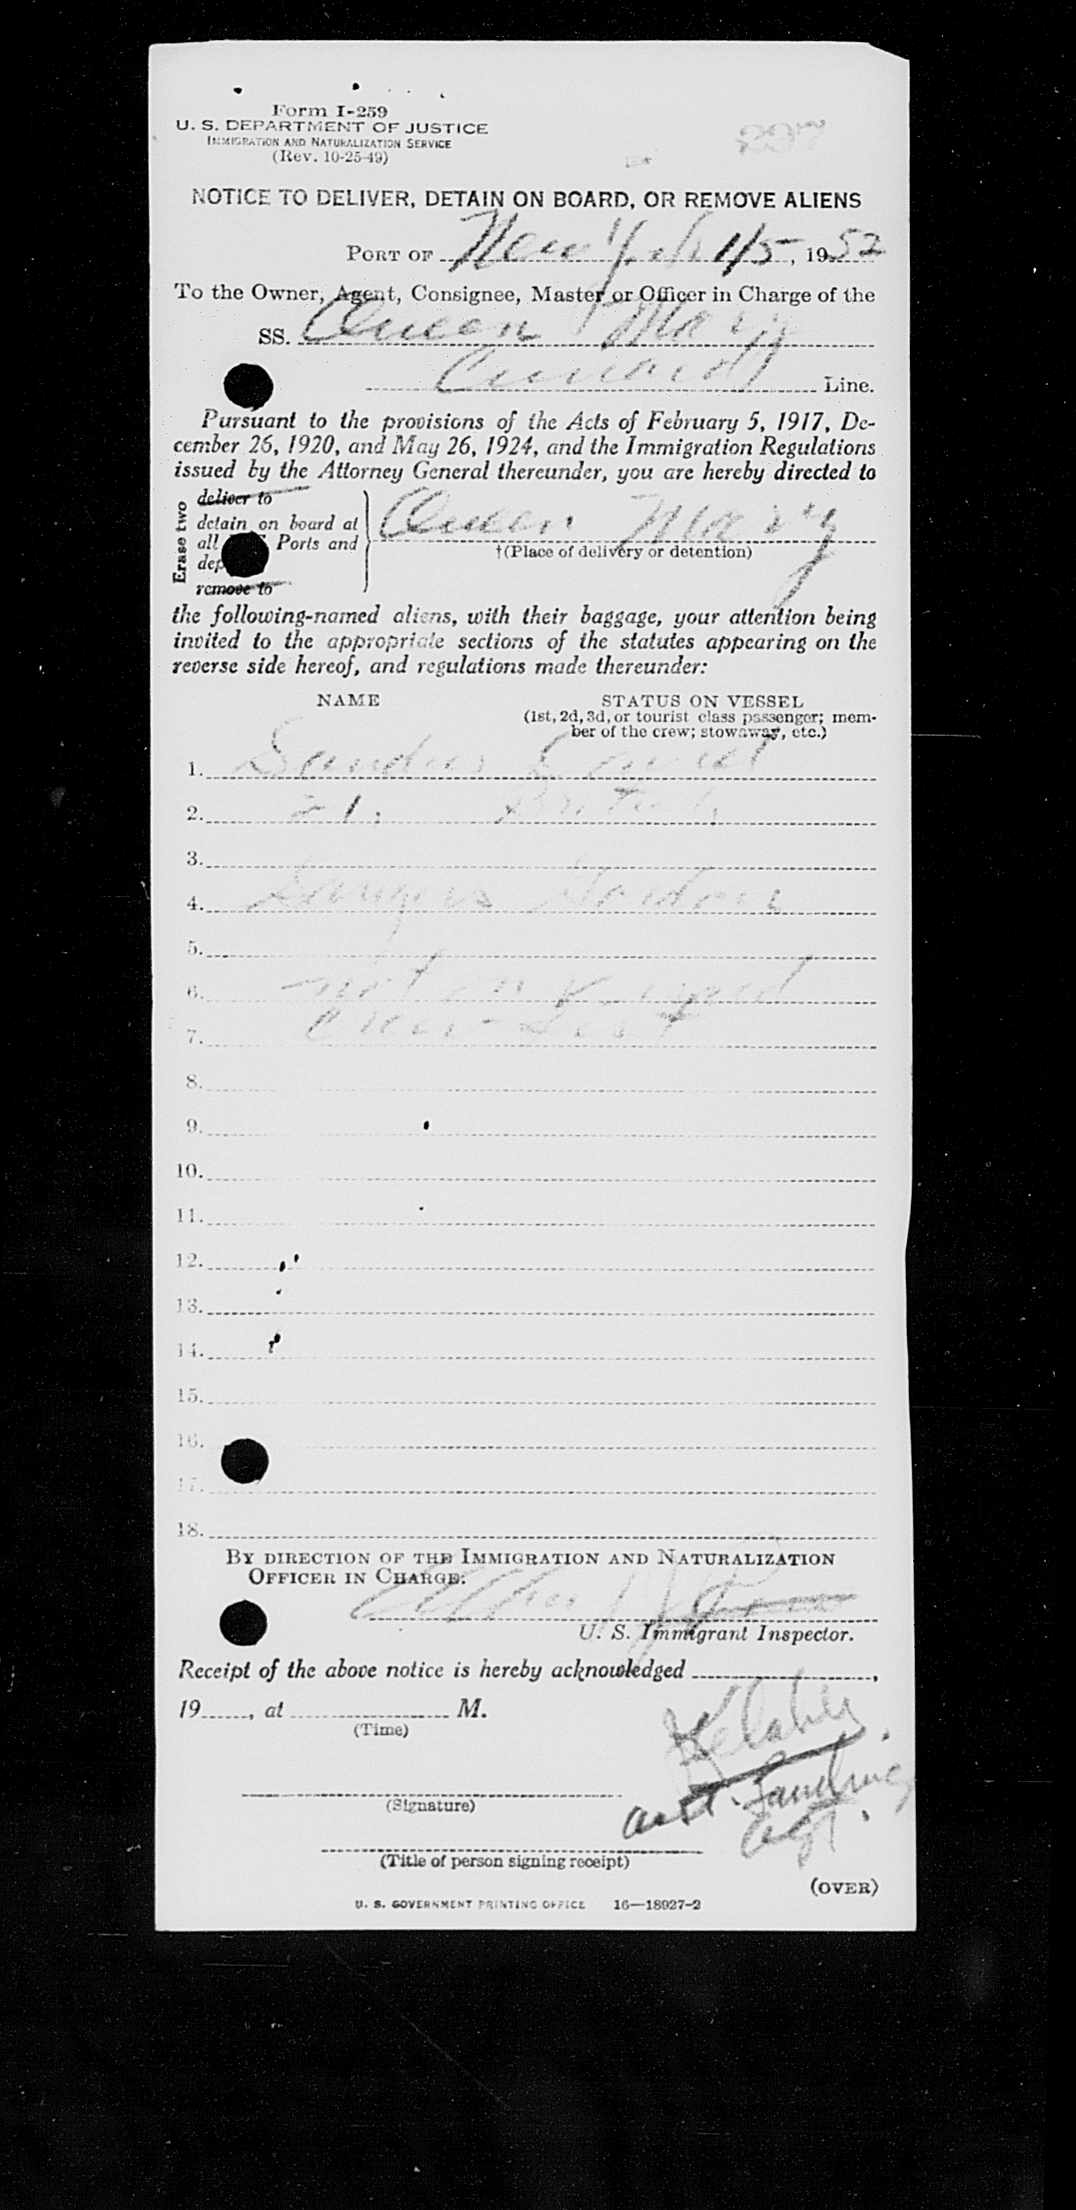 Form I-259
U. S. DEPARTMENT OF JUSTICE
IMMIGRATION AND NATURALIZATION SERVICE
(Rev. 10-25-49)
297
NOTICE TO DELIVER, DETAIN ON BOARD, OR REMOVE ALIENS
PORT OF New York 1/5, 1952
To the Owner, Agent, Consignee, Master or Officer in Charge of the
SS. Queen Mary
Cunard Line.
Pursuant to the provisions of the Acts of February 5, 1917, De-
cember 26, 1920, and May 26, 1924, and the Immigration Regulations
issued by the Attorney General thereunder, you are hereby directed to
Erase two
deliver to
detain on board at
all Ports and
dep
remove to
Queen Mary
†(Place of delivery or detention)
the following-named aliens, with their baggage, your attention being
invited to the appropriate sections of the statutes appearing on the
reverse side hereof, and regulations made thereunder:
NAME STATUS ON VESSEL
(1st, 2d, 3d, or tourist class passenger; mem-
ber of the crew; stowaway, etc.)
1. Sandus
2. 21. British
3.
4. Gordon
5.
6. not on visaed
7. crew list
8.
9.
10.
11.
12.
13.
14.
15.
16.
17.
18.
BY DIRECTION OF THE IMMIGRATION AND NATURALIZATION
OFFICER IN CHARGE:
U. S. Immigrant Inspector.
Receipt of the above notice is hereby acknowledged ,
19 , at M.
(Time)
(Signature)
asst. Landing
agt.
(Title of person signing receipt)
(OVER)
U. S. GOVERNMENT PRINTING OFFICE 16—18927-2